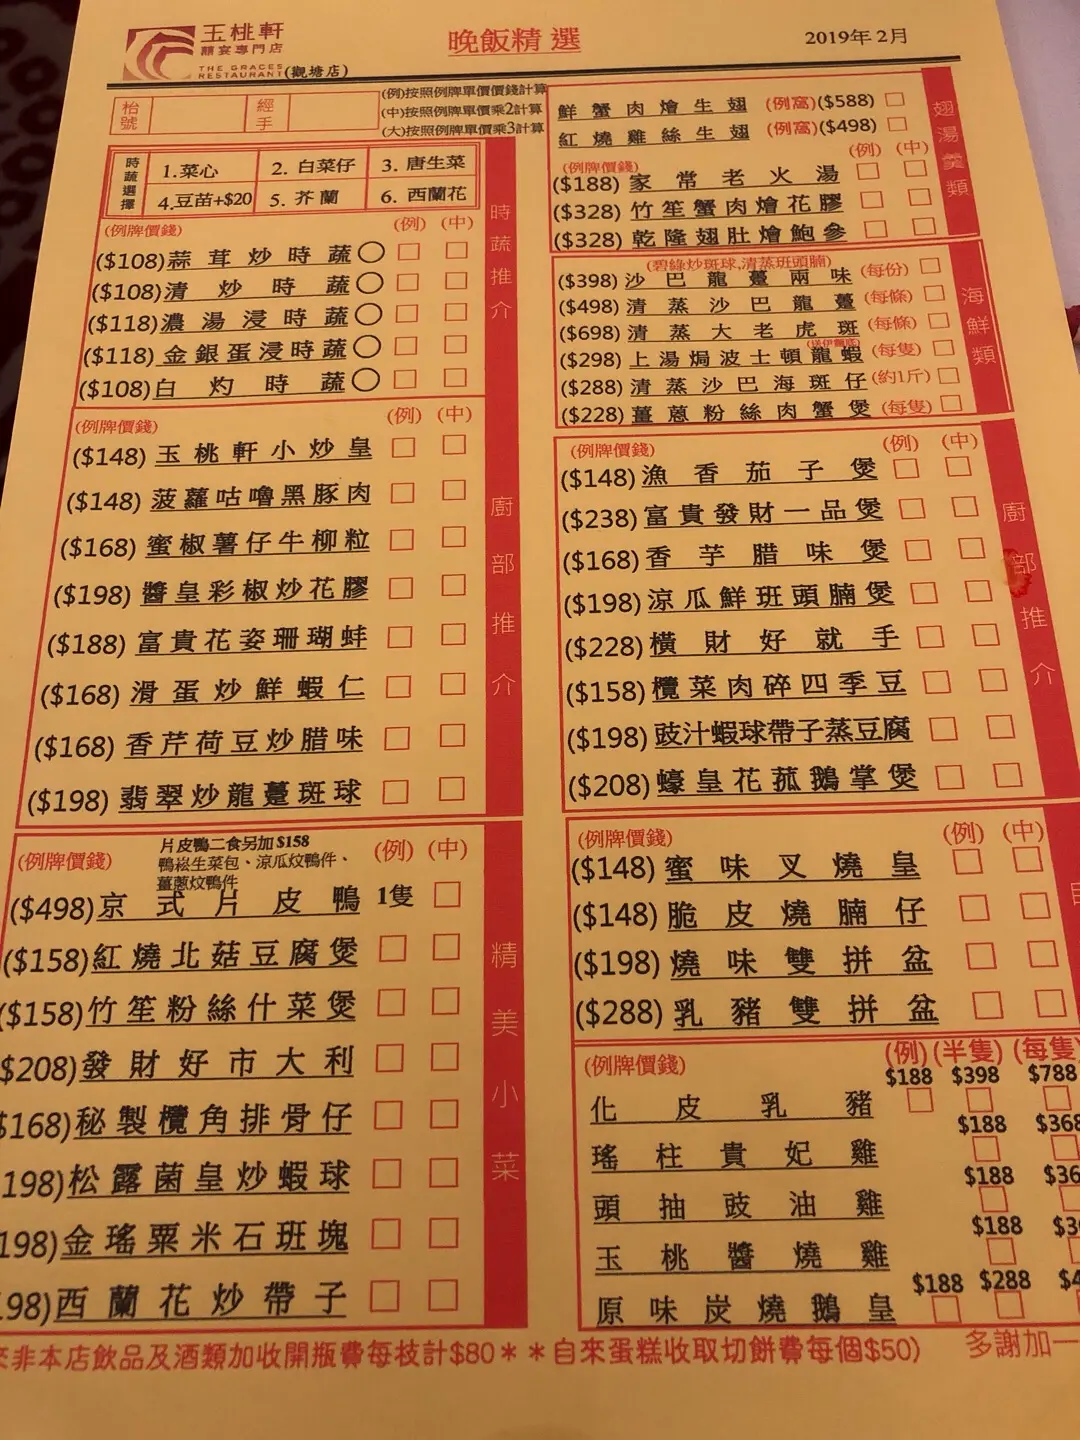 玉桃軒
囍宴專門店
THE GRACES
RESTAURANT(觀塘店)
晚飯精選
2019年2月
枱號
經手
(例)按照例牌單價價錢計算
(中)按照例牌單價乘2計算
(大)按照例牌單價乘3計算
時蔬選擇
1.菜心 2. 白菜仔 3. 唐生菜
4.豆苗+$20 5. 芥蘭 6. 西蘭花
時蔬推介
(例牌價錢) (例) (中)
($108)蒜茸炒時蔬
($108)清炒時蔬
($118)濃湯浸時蔬
($118)金銀蛋浸時蔬
($108)白灼時蔬
廚部推介
(例牌價錢) (例) (中)
($148)玉桃軒小炒皇
($148)菠蘿咕嚕黑豚肉
($168)蜜椒薯仔牛柳粒
($198)醬皇彩椒炒花膠
($188)富貴花姿珊瑚蚌
($168)滑蛋炒鮮蝦仁
($168)香芹荷豆炒腊味
($198)翡翠炒龍躉斑球
精美小菜
片皮鴨二食另加$158
(例牌價錢) 鴨崧生菜包、涼瓜炆鴨件、 (例) (中)
薑蔥炆鴨件
($498)京式片皮鴨 1隻
($158)紅燒北菇豆腐煲
($158)竹笙粉絲什菜煲
$208)發財好市大利
$168)秘製欖角排骨仔
198)松露菌皇炒蝦球
198)金瑤粟米石班塊
98)西蘭花炒帶子
翅湯羹類
鮮蟹肉燴生翅 (例窩)($588)
紅燒雞絲生翅 (例窩)($498)
(例牌價錢) (例) (中)
($188)家常老火湯
($328)竹笙蟹肉燴花膠
($328)乾隆翅肚燴鮑參
海鮮類
(碧綠炒斑球,清蒸班頭腩)
($398)沙巴龍躉兩味 (每份)
($498)清蒸沙巴龍躉 (每條)
($698)清蒸大老虎斑 (每條)
($298)上湯焗波士頓龍蝦 (每隻)
($288)清蒸沙巴海斑仔 (約1斤)
($228)薑蔥粉絲肉蟹煲 (每隻)
廚部推介
(例牌價錢) (例) (中)
($148)漁香茄子煲
($238)富貴發財一品煲
($168)香芋腊味煲
($198)涼瓜鮮班頭腩煲
($228)橫財好就手
($158)欖菜肉碎四季豆
($198)豉汁蝦球帶子蒸豆腐
($208)蠔皇花菰鵝掌煲
(例牌價錢) (例) (中)
($148)蜜味叉燒皇
($148)脆皮燒腩仔
($198)燒味雙拼盆
($288)乳豬雙拼盆
(例牌價錢) (例) (半隻) (每隻)
$188 $398 $788
化皮乳豬
$188 $368
瑤柱貴妃雞
$188 $36
頭抽豉油雞
$188
玉桃醬燒雞
$188 $288
原味炭燒鵝皇
非本店飲品及酒類加收開瓶費每枝計$80＊＊自來蛋糕收取切餅費每個$50) 多謝加一